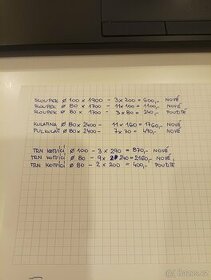 SLOUPEK Ø 100 x 1900 - 3 x 200 = 600,- NOVÉ
SLOUPEK Ø 80 x 1700 - 11 x 100 = 1100,- NOVÉ
SLOUPEK Ø 80 x 1700 - 3 x 80 = 240,- POUŽITÉ
KULATINA Ø 80 x 2400 - 11 x 160 = 1760,- NOVÉ
PULKULÁČ Ø 80 x 2400 - 7 x 70 = 490,- NOVÉ
TRN KOTVÍCÍ Ø 100 - 3 x 290 = 870,- NOVÉ
TRN KOTVÍCÍ Ø 80 - 9 x 240 = 2160,- NOVÉ
TRN KOTVÍCÍ Ø 80 - 2 x 200 = 400,- POUŽITÉ